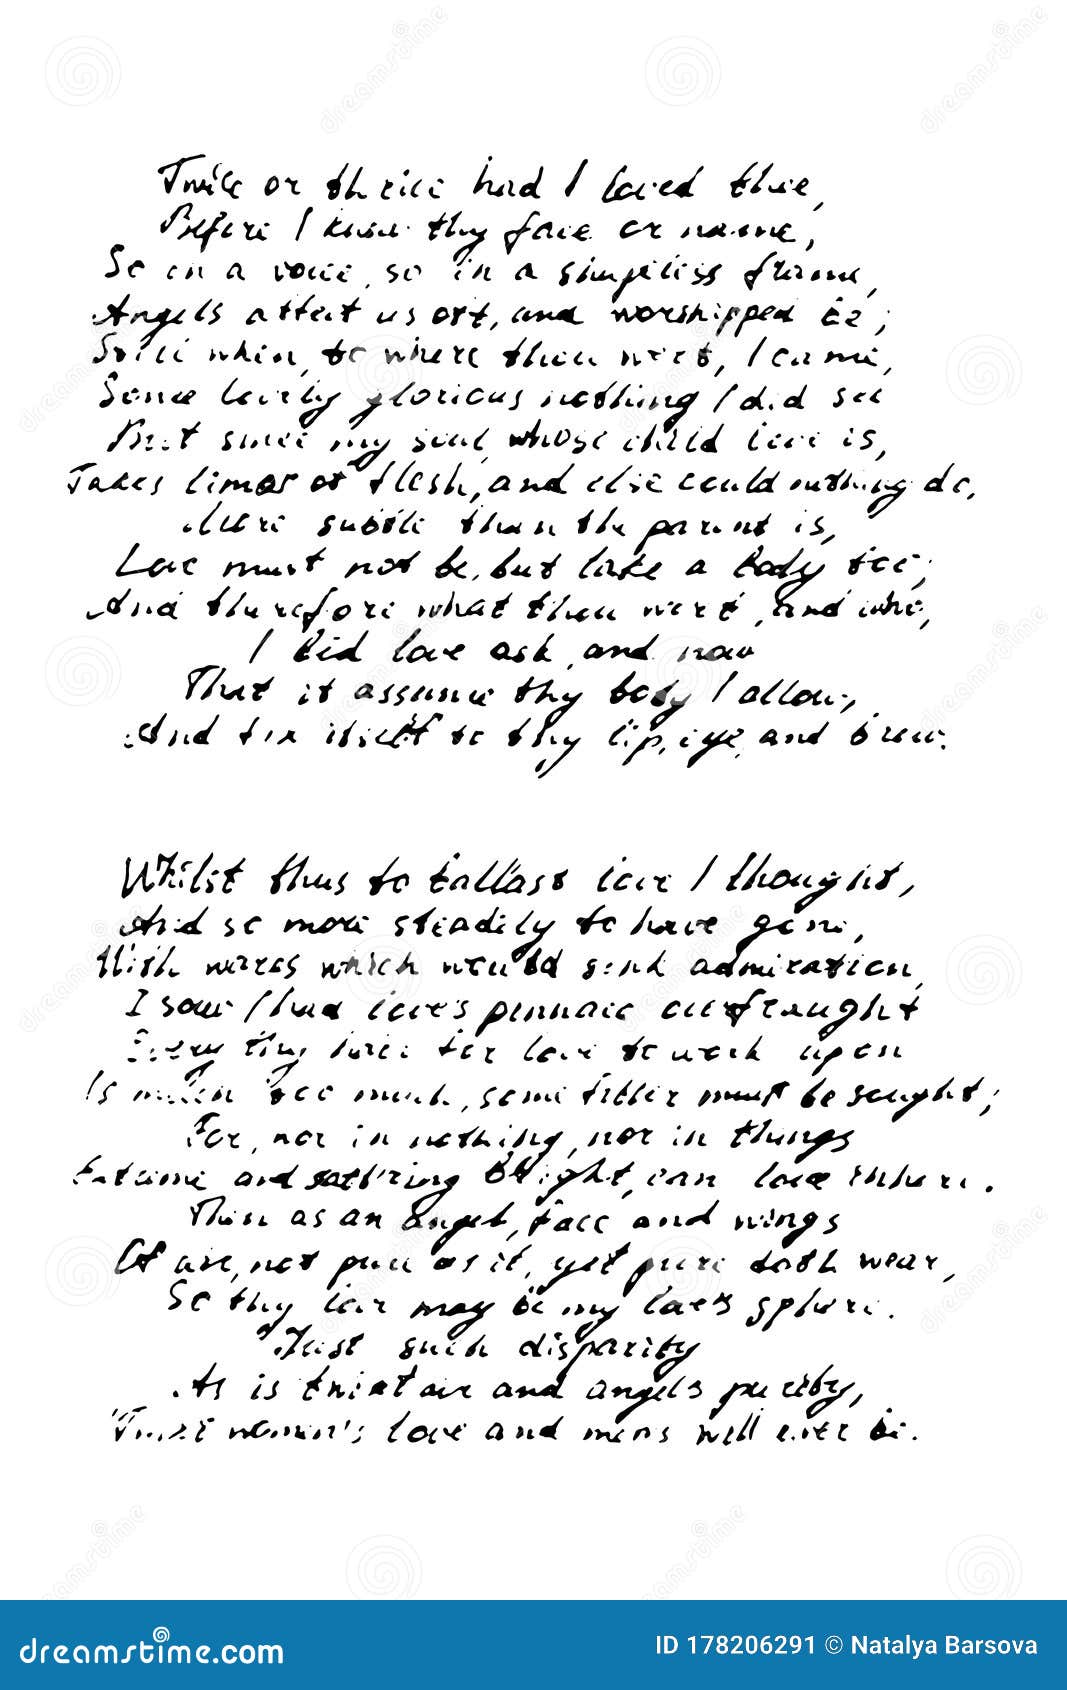 Twice or thrice had I loved thee,
Before I knew thy face or name,
So in a voice, so in a shapeless frame,
Angels affect us oft, and worshipped be;
Still when, to where thou wert, I came,
Some lovely glorious nothing I did see
But since my soul, whose child love is,
Takes limbs of flesh, and else could nothing do,
More subtle than the parent is,
Love must not be, but take a body too;
And therefore what thou wert, and who,
I bid love ask, and now
That it assume thy body I allow,
And fix itself to thy lip, eye, and brow.
Whilst thus to ballast love I thought,
And so more steadily to have gone,
With wares which would sink admiration,
I saw I had love's pinnace overfraught
Every thy hair for love to work upon
Is much too much, some fitter must be sought;
For, nor in nothing, nor in things
Extreme and scatt'ring bright, can love inhere.
Then as an angel, face and wings
Of air, not pure as it, yet pure doth wear,
So thy love may be my love's sphere.
Just such disparity
As is twixt air and angels purity,
Twixt women's love and mens will ever be.
dreamstime.com
ID 178206291 © Natalya Barsova